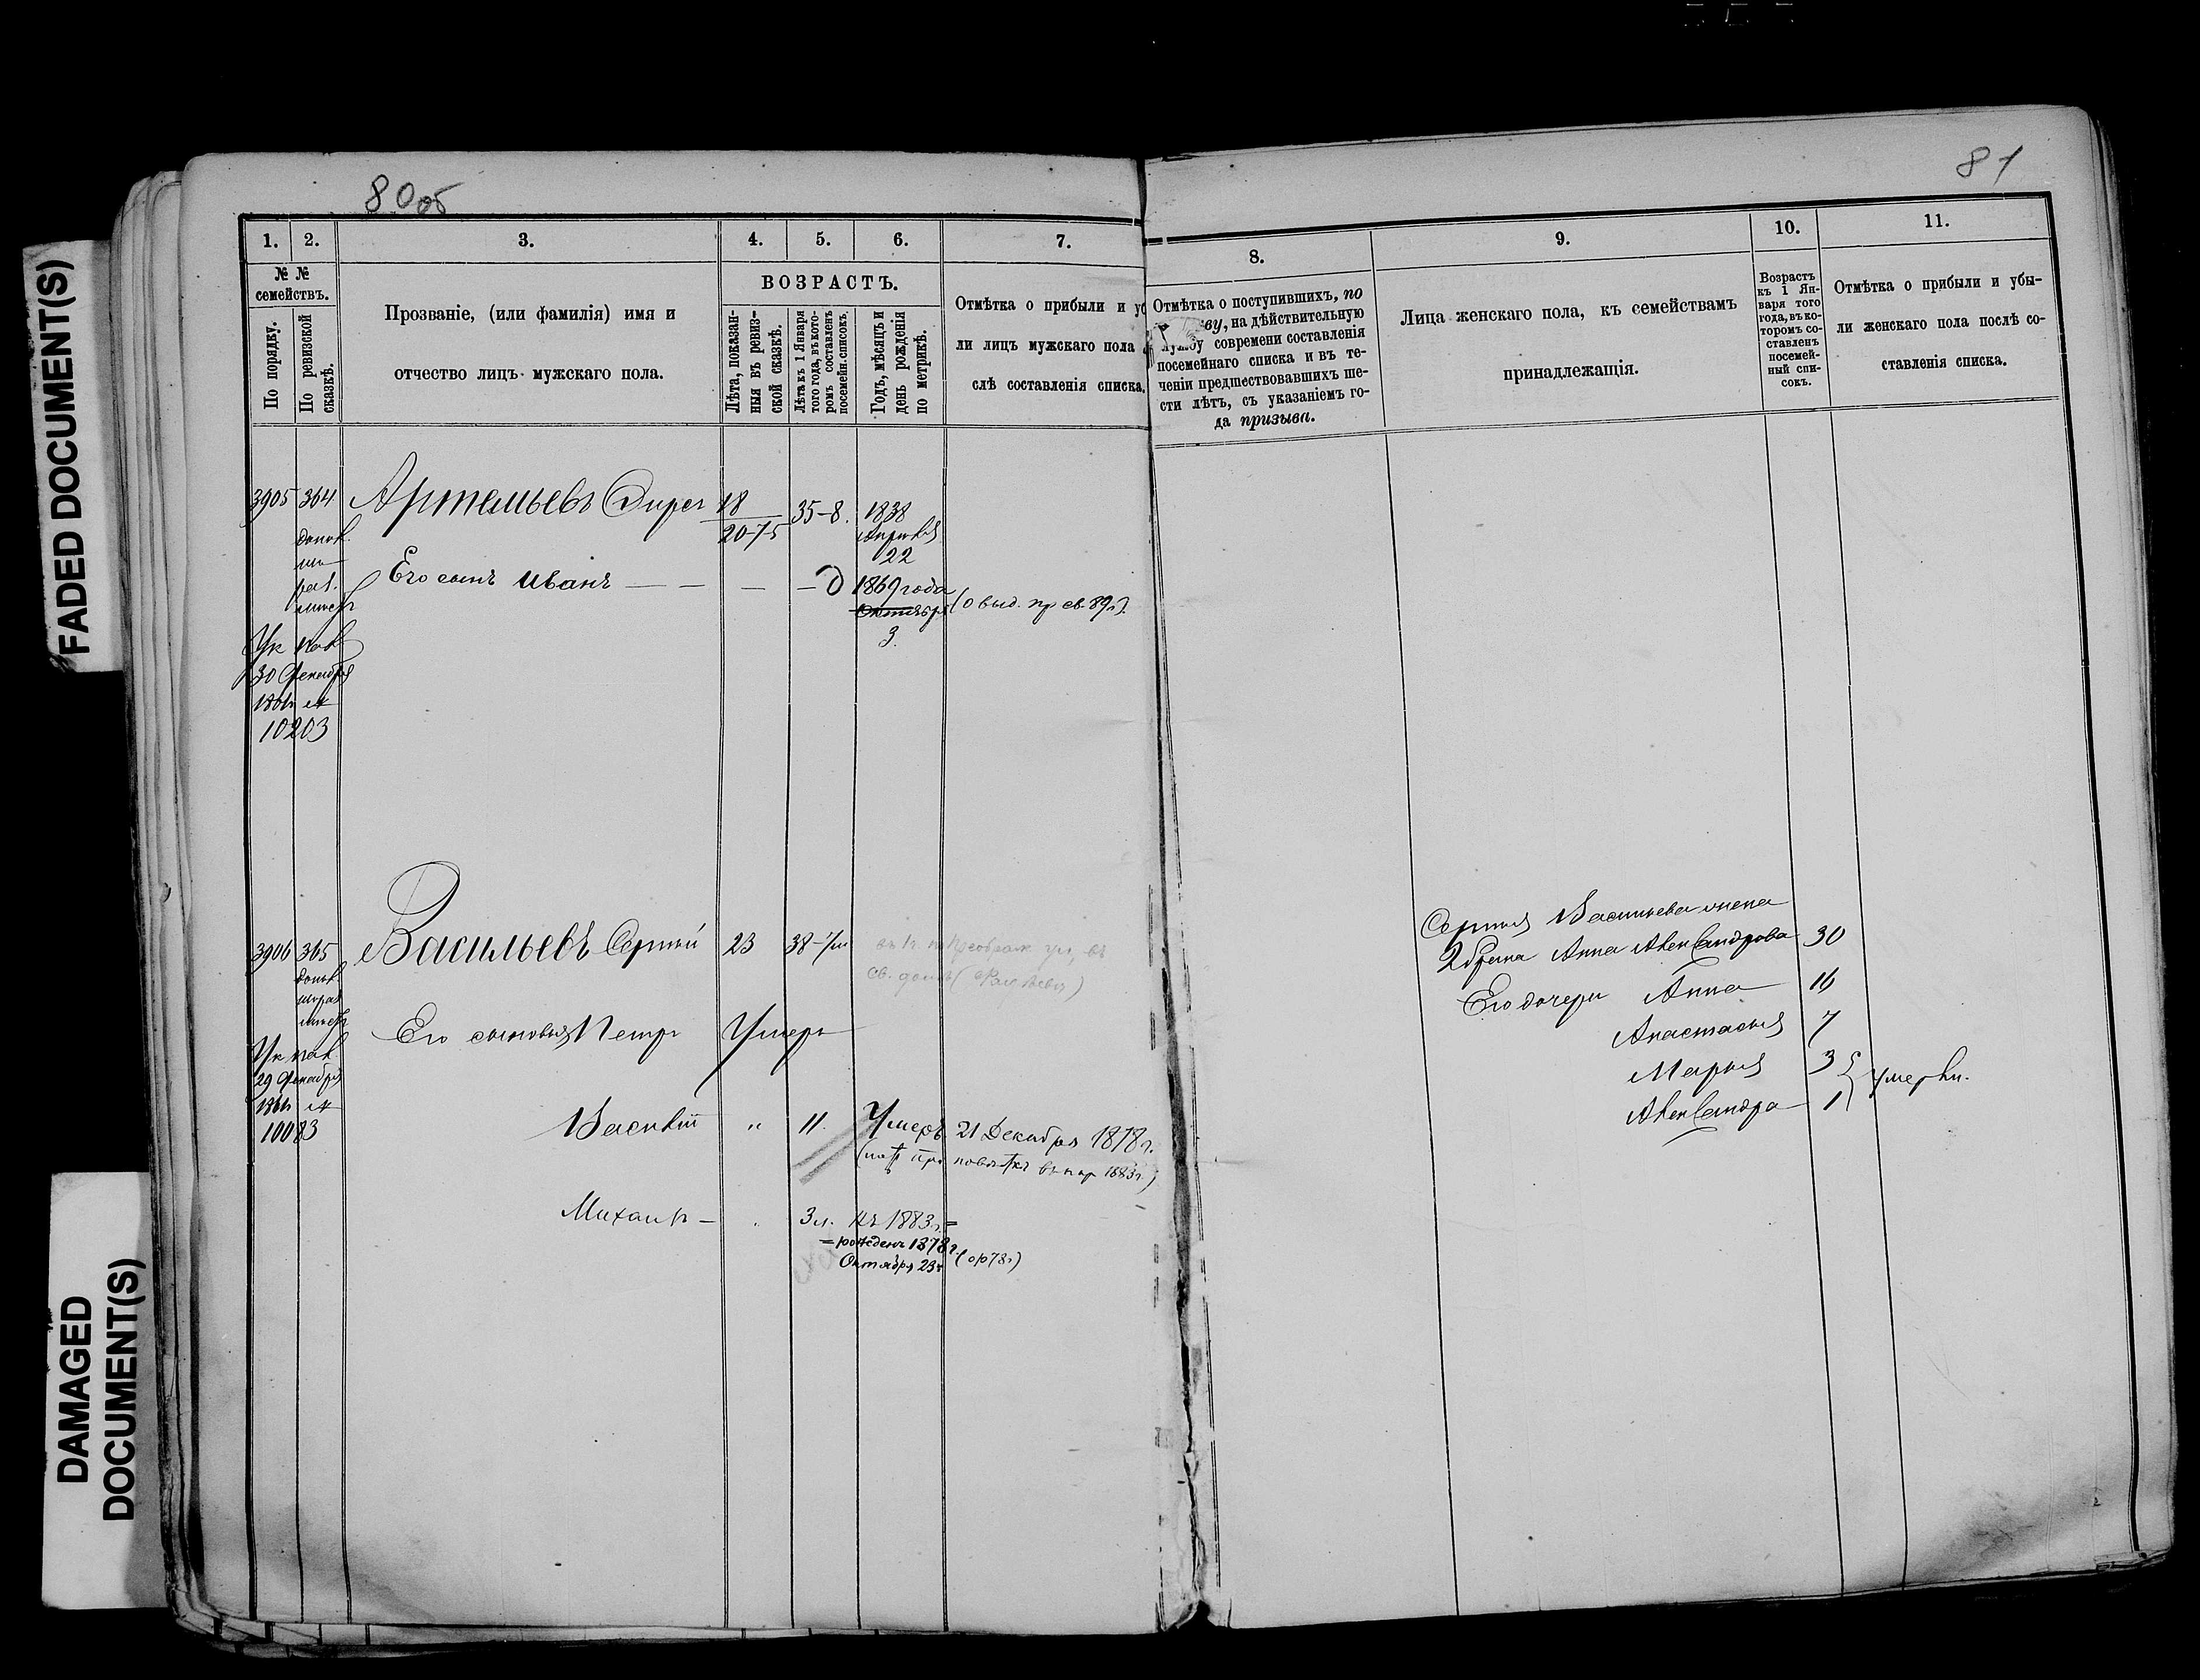 FADED DOCUMENT(S)
DAMAGED
DOCUMENT(S)
80об
1.
2.
3.
4.
5.
6.
7.
№ №
семействъ.
По порядку.
По ревизской
сказкѣ.
Прозваніе, (или фамилія) имя и
отчество лицъ мужскаго пола.
ВОЗРАСТЪ.
Лѣта, показан-
ныя въ ревиз-
ской сказкѣ.
Лѣта къ 1 Января
того года, въ кото-
ромъ составленъ
посемейн. списокъ.
Годъ, мѣсяцъ и
день рожденія
по метрикѣ.
Отмѣтка о прибыли и уб
ли лицъ мужскаго пола
слѣ составленія списка.
3905 364 Артемьевъ 18 35-8. 1838
20-75 Апрѣля
22
Его сынъ Иванъ — — — — 1869 года
Октября
3.
30 Декабря
10203
3906 365 Васильевъ Сергѣй 23 38
Его сыновья Петръ Умеръ
29 Декабря
10083
Василій " 11. Умеръ 21 Декабря 1878 г.
1883 г.)
Михаилъ – 3 л. Къ 1883 г. =
= рожденъ 1878 г.
Октября 23
81
8.
9.
10.
11.
Отмѣтка о поступившихъ, по
ву, на дѣйствительную
службу современи составленія
посемейнаго списка и въ те-
ченіи предшествовавшихъ ше-
сти лѣтъ, съ указаніемъ го-
да призыва.
Лица женскаго пола, къ семействамъ
принадлежащія.
Возрастъ
къ 1 Ян-
варя того
года, въ ко-
торомъ со-
ставленъ
посемей-
ный спи-
сокъ.
Отмѣтка о прибыли и убы-
ли женскаго пола послѣ со-
ставленія списка.
Сергѣя Васильева жена
2 брака Анна Александрова 30
Его дочери Анна 16
Анастасья 7
Марья 3
умерли.
Александра 1